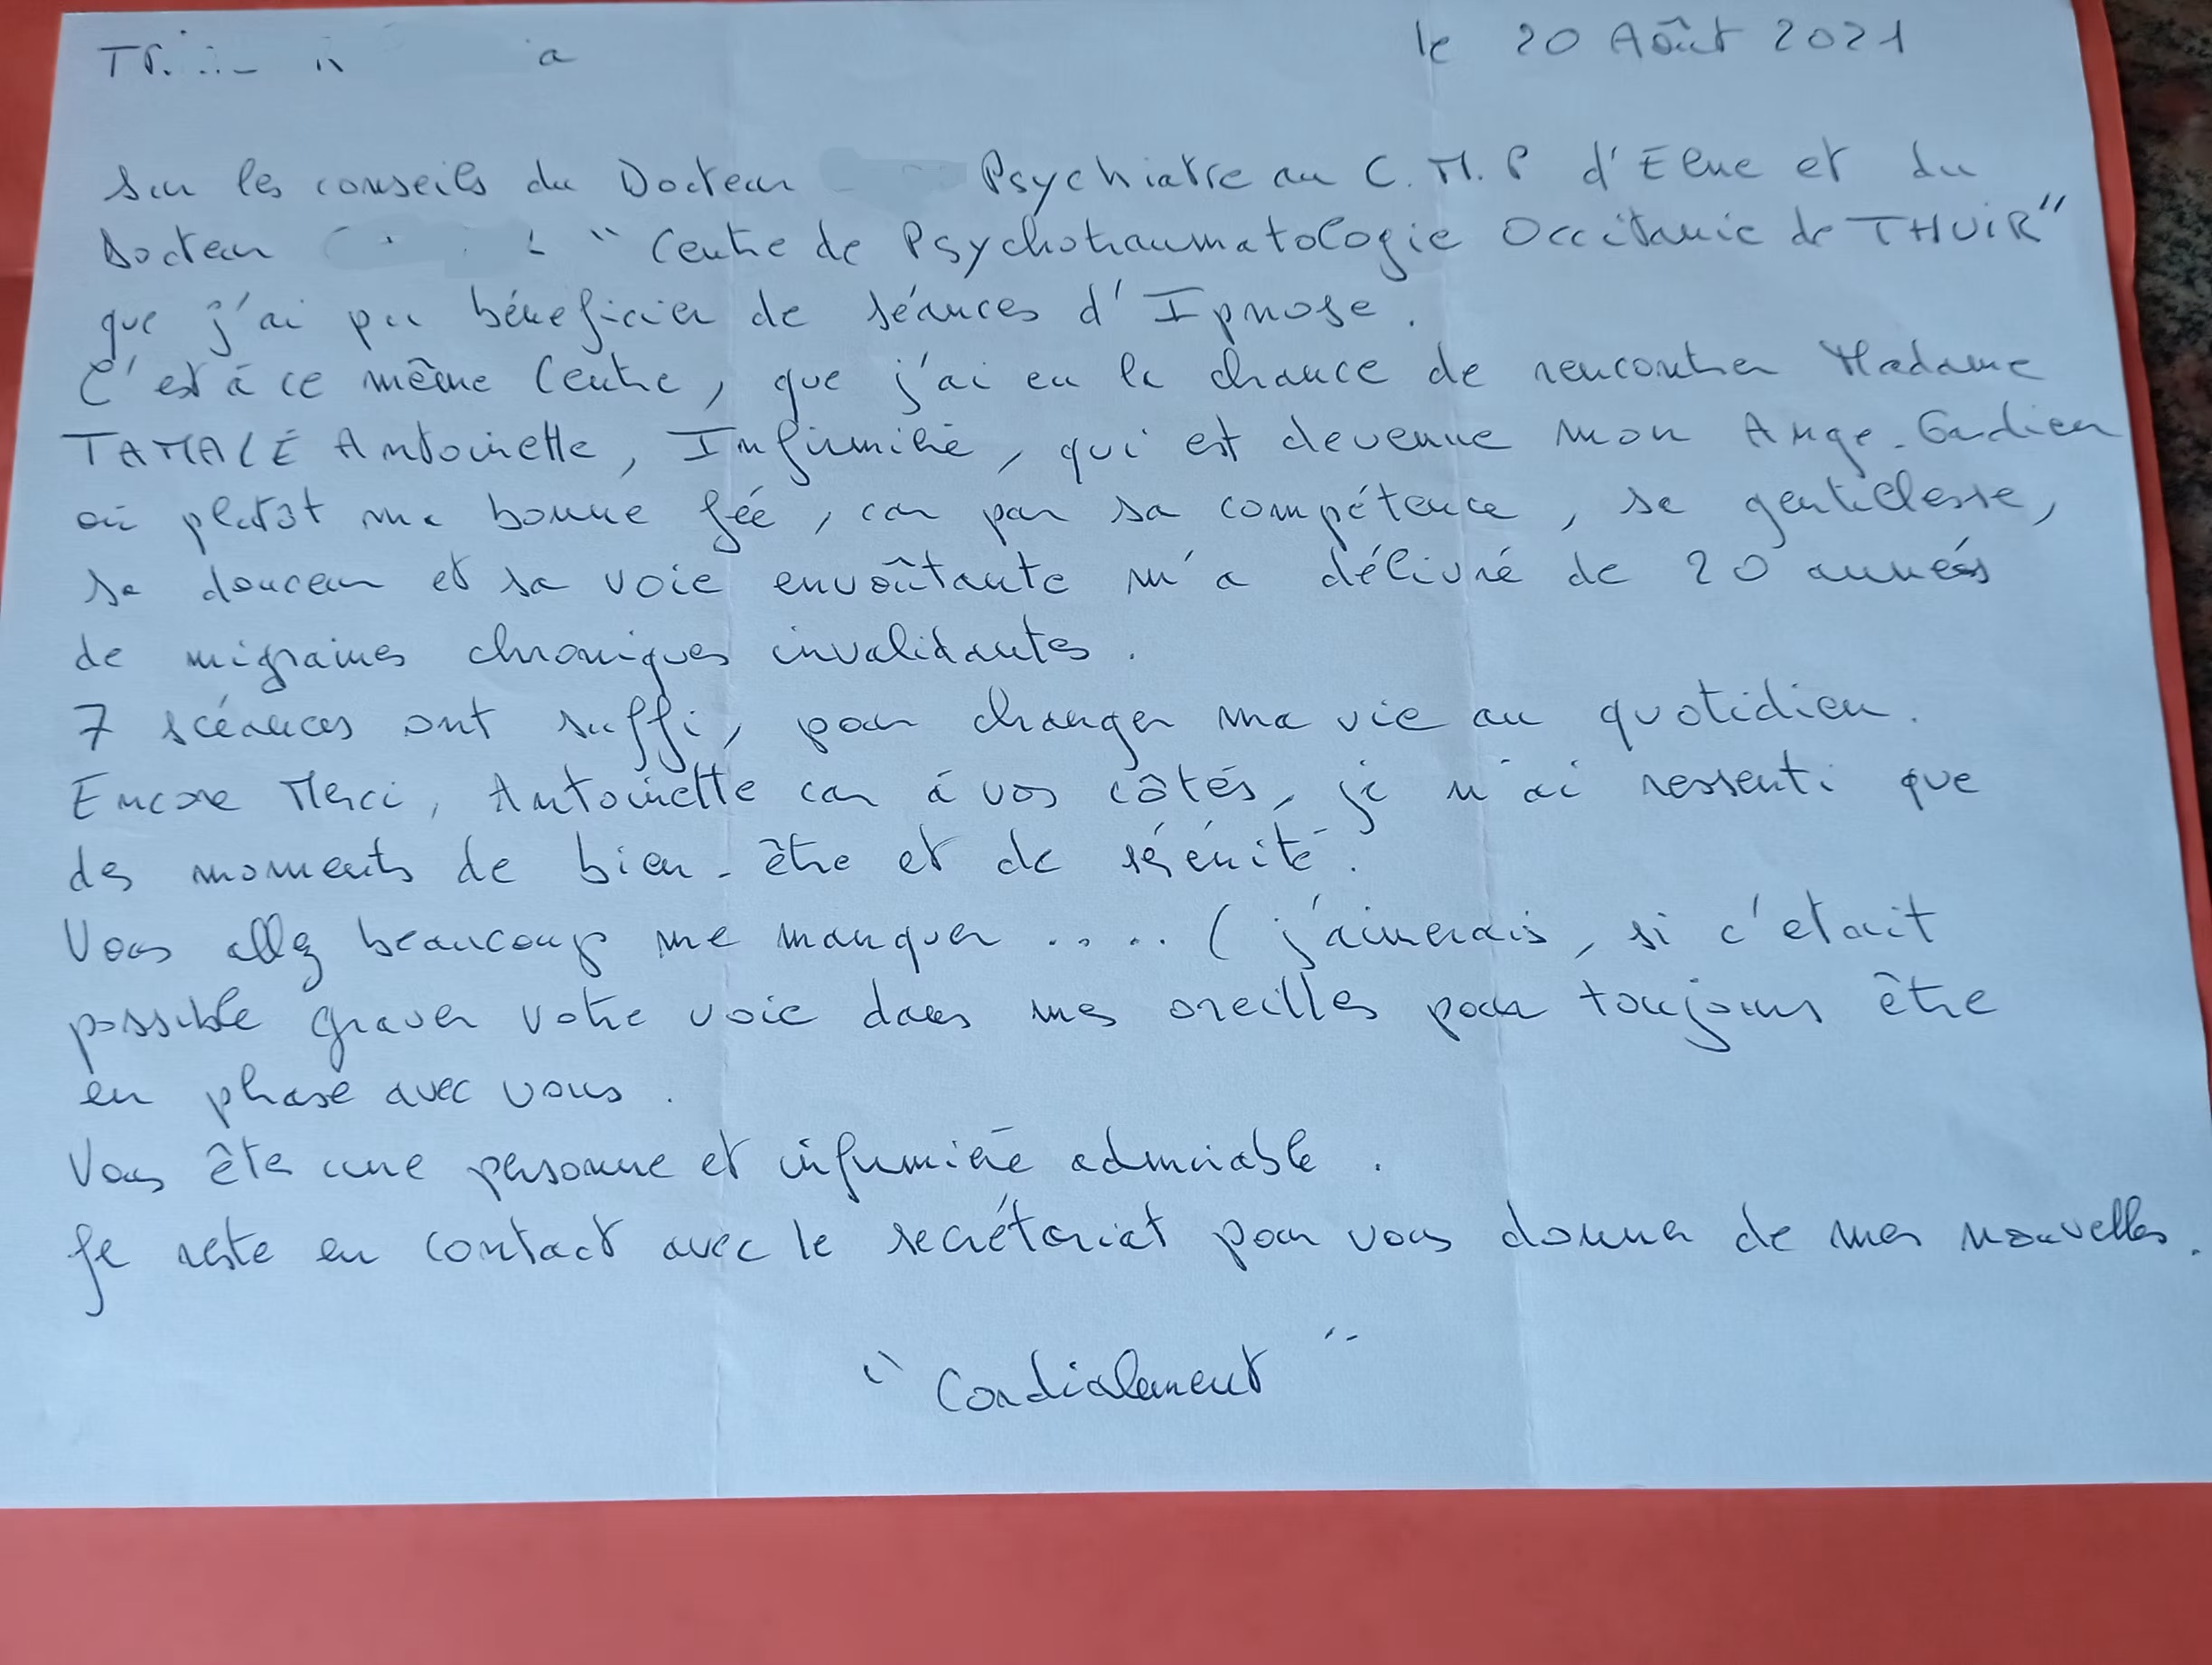 le 20 Août 2021
Sur les conseils du Docteur Psychiatre au C.M.P d'Elne et du
Docteur " Centre de Psychotraumatologie Occitanie de THUIR"
que j'ai pu bénéficier de séances d'Ipnose.
C'est à ce même Centre, que j'ai eu la chance de rencontrer Madame
TAMALÉ Antoinette, Infirmière, qui est devenue mon Ange-Gardien
où plutôt ma bonne fée, car par sa compétence, sa gentillesse,
sa douceur et sa voie envoûtante m'a délivré de 20 années
de migraines chroniques invalidantes.
7 scéances ont suffi, pour changer ma vie au quotidien.
Encore Merci, Antoinette car à vos côtés, je n'ai ressenti que
des moments de bien-être et de sérénité.
Vous allez beaucoup me manquer .... ( j'aimerais, si c'etait
possible graver votre voie dans mes oreilles pour toujours être
en phase avec vous.
Vous ête une personne et infirmière admirable.
Je reste en contact avec le secrétariat pour vous donner de mes nouvelles.
"Cordialement"